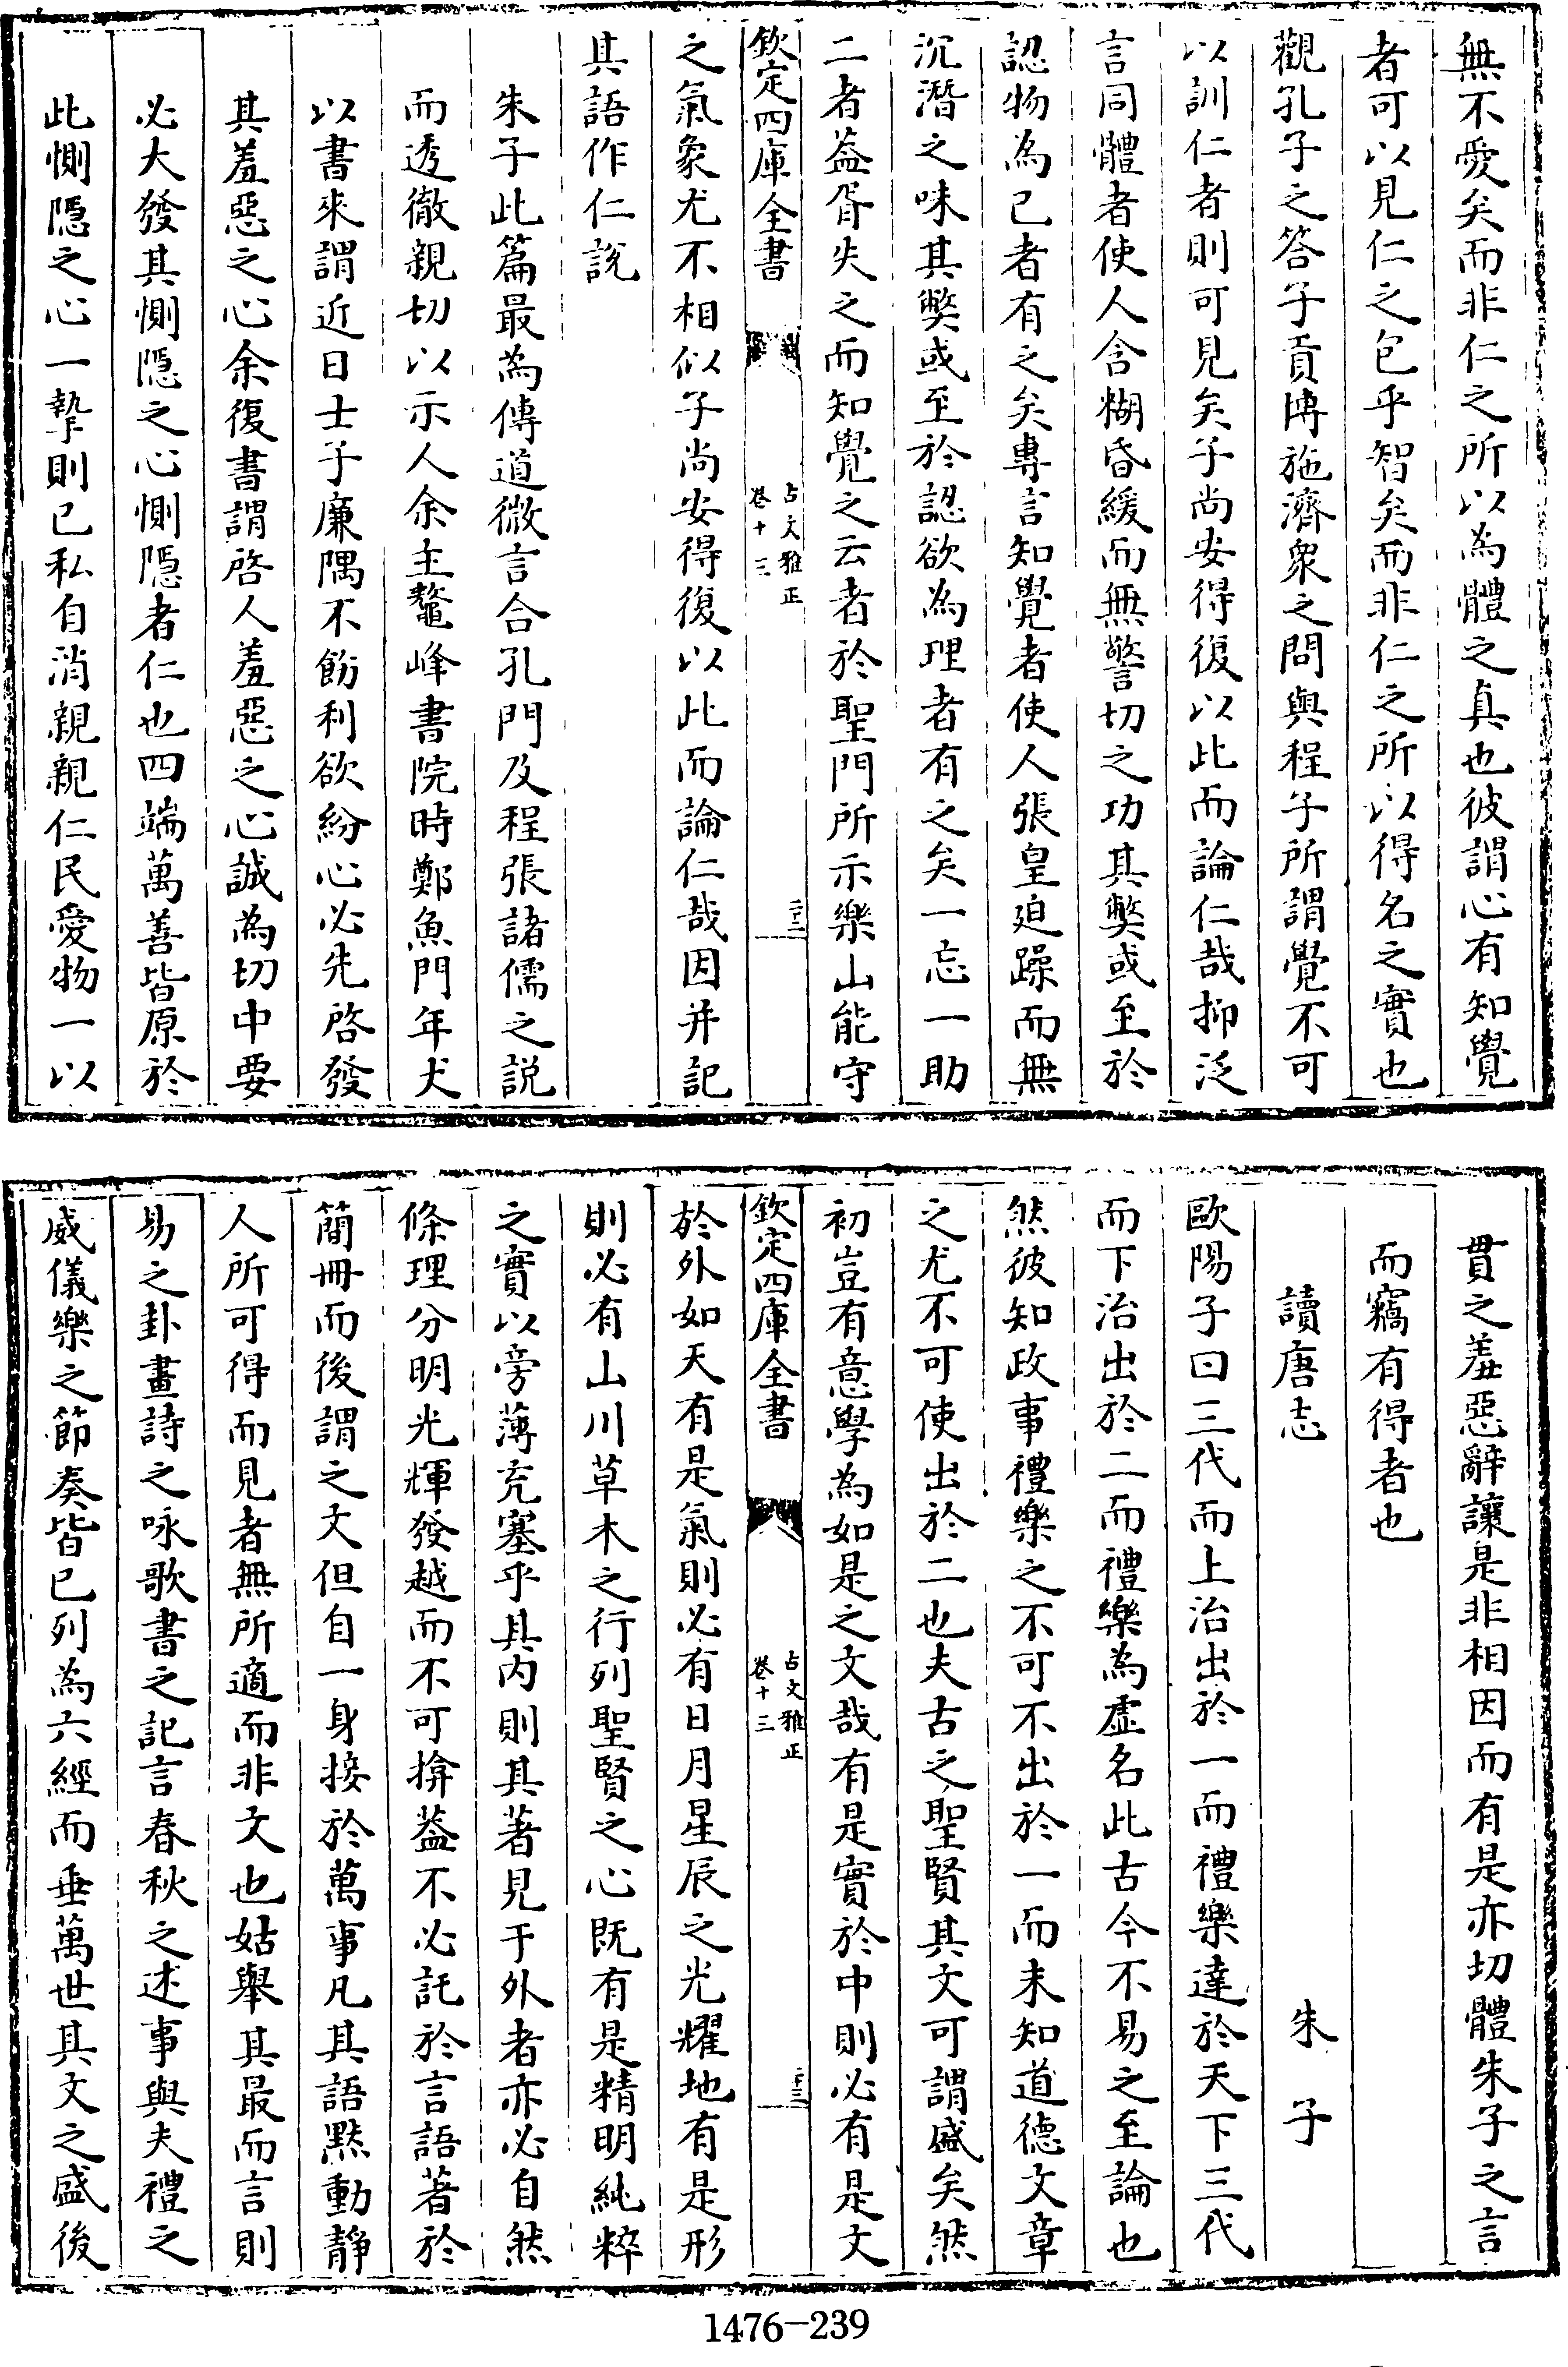 無不愛矣而非仁之所以為體之真也彼謂心有知覺
者可以見仁之包乎智矣而非仁之所以得名之實也
觀孔子之答子貢博施濟衆之問與程子所謂覺不可
以訓仁者則可見矣子尚安得復以此而論仁哉抑泛
言同體者使人含糊昏緩而無警切之功其弊或至於
認物為已者有之矣專言知覺者使人張皇廹躁而無
沉潛之味其弊或至於認欲為理者有之矣一忘一助
二者葢胥失之而知覺之云者於聖門所示樂山能守
欽定四庫全書
古文雅正
卷十三
二十三
之氣象尤不相似子尚安得復以此而論仁哉因并記
其語作仁說
朱子此篇最為傳道微言合孔門及程張諸儒之說
而透徹親切以示人余主鼇峰書院時鄭魚門年丈
以書來謂近日士子廉隅不飭利欲紛心必先啓發
其羞惡之心余復書謂啓人羞惡之心誠為切中要
必大發其惻隱之心惻隱者仁也四端萬善皆原於
此惻隱之心一摯則已私自消親親仁民愛物一以
貫之羞惡辭讓是非相因而有是亦切體朱子之言
而竊有得者也
讀唐志　朱子
歐陽子曰三代而上治出於一而禮樂達於天下三代
而下治出於二而禮樂為虛名此古今不易之至論也
然彼知政事禮樂之不可不出於一而未知道德文章
之尤不可使出於二也夫古之聖賢其文可謂盛矣然
初豈有意學為如是之文哉有是實於中則必有是文
欽定四庫全書
古文雅正
卷十三
二十三
於外如天有是氣則必有日月星辰之光耀地有是形
則必有山川草木之行列聖賢之心既有是精明純粹
之實以旁薄充塞乎其内則其著見于外者亦必自然
條理分明光輝發越而不可揜葢不必託於言語著於
簡冊而後謂之文但自一身接於萬事凡其語默動靜
人所可得而見者無所適而非文也姑舉其最而言則
易之卦畫詩之咏歌書之記言春秋之述事與夫禮之
威儀樂之節奏皆已列為六經而垂萬世其文之盛後
1476-239